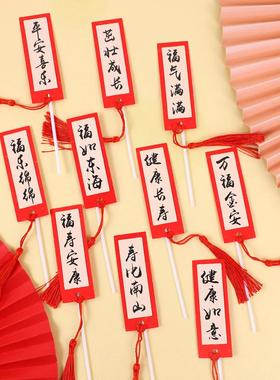 平安喜乐
茁壮成长
福气满满
福乐绵绵
福如东海
健康长寿
万福金安
福寿安康
寿比南山
健康如意